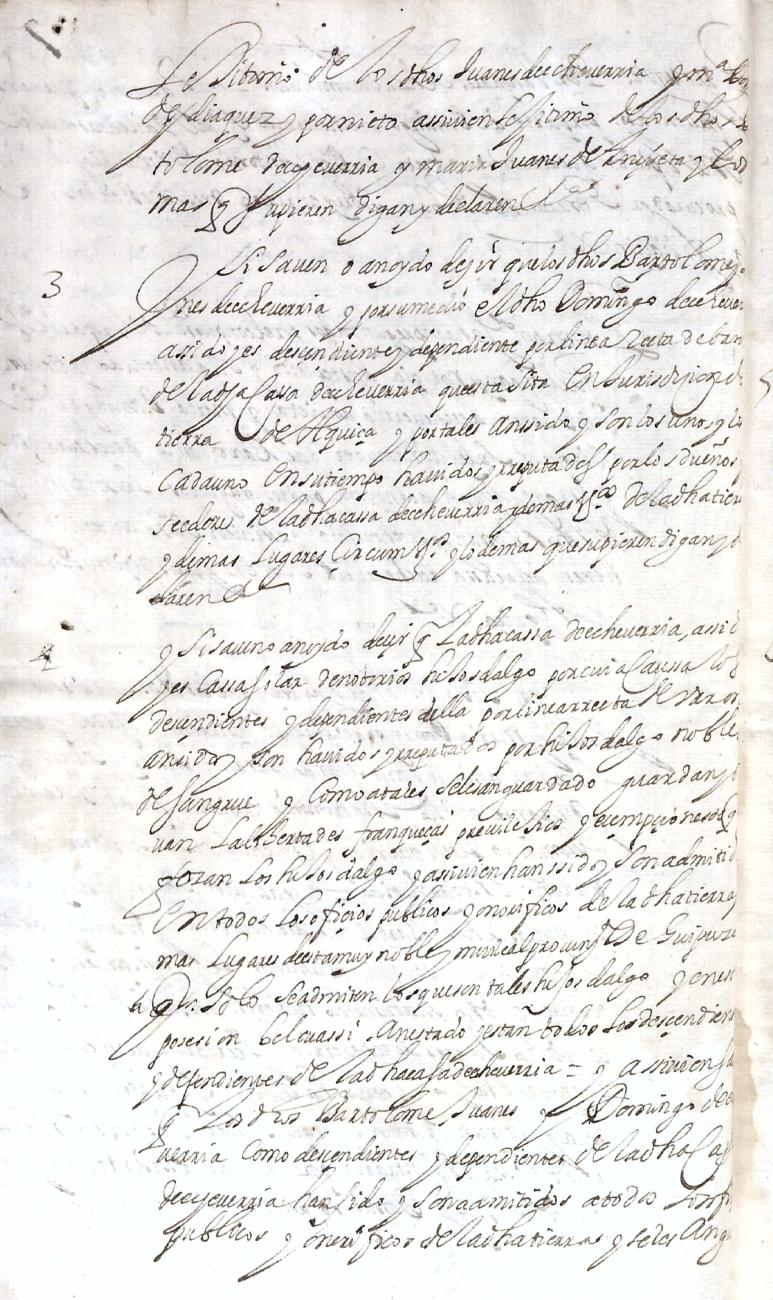 lesitimo de los dhos Juanes de echeverria y mª
de ydiaquez y por nieto assi vien lesitimo de los dhos
tolome de echeverria y maria Juanes de y
mas q supieren digan y declaren
3
Si saven o an oydo deçir que los dhos Bartolome
nes de echeverria y por su medio el dho Domingo de echever
a sido y es descendiente y dependiente por linea Recta de baro
de la dha Cassa de echeverria que esta sita En Jurisdiçion de
tierra de Aquiça y por tales an ssido y son los unos y lo
Cada uno En su tiempo havidos y rreputados por los dueños
seedores de la dha cassa de echeverria y demas vºs de la dha tier
y demas lugares Circumvºs y lo demas que supieren digan y
claren
4
y si saven o an oydo deçir q La dha cassa de echeverria, assi
y es Cassa solar de notorios hijosdalgo por cuia Caussa los
descendientes y dependientes della por linea rrecta de varon
an sido y son havidos y rreputados por hijosdalgo nobles
de sangrue y Como a tales se les an guardado guardan y
van Las libertades franqueças previlesios y exempçiones de q
gozan Los hijosdalgo y assi vien han ssido y son admitid
En todos Los ofiçios publicos y onorificos de la dha tierra
mas Lugares de esta muy noble y muy leal provinçia De Guipuz
a q solo se admiten los que son tales hijosdalgo y en es
posesion bel cuassi An estado y estan todos Los descendien
y dependientes de la dha casa de echeverria = y assi vien sa
q Los dhos Bartolome Juanes y Domingo de e
verria Como descendientes y dependientes de la dha Cas
de echeverria han sido y son admitidos a todos Los of
publicos y onorificos de la dha tierra y se les An g